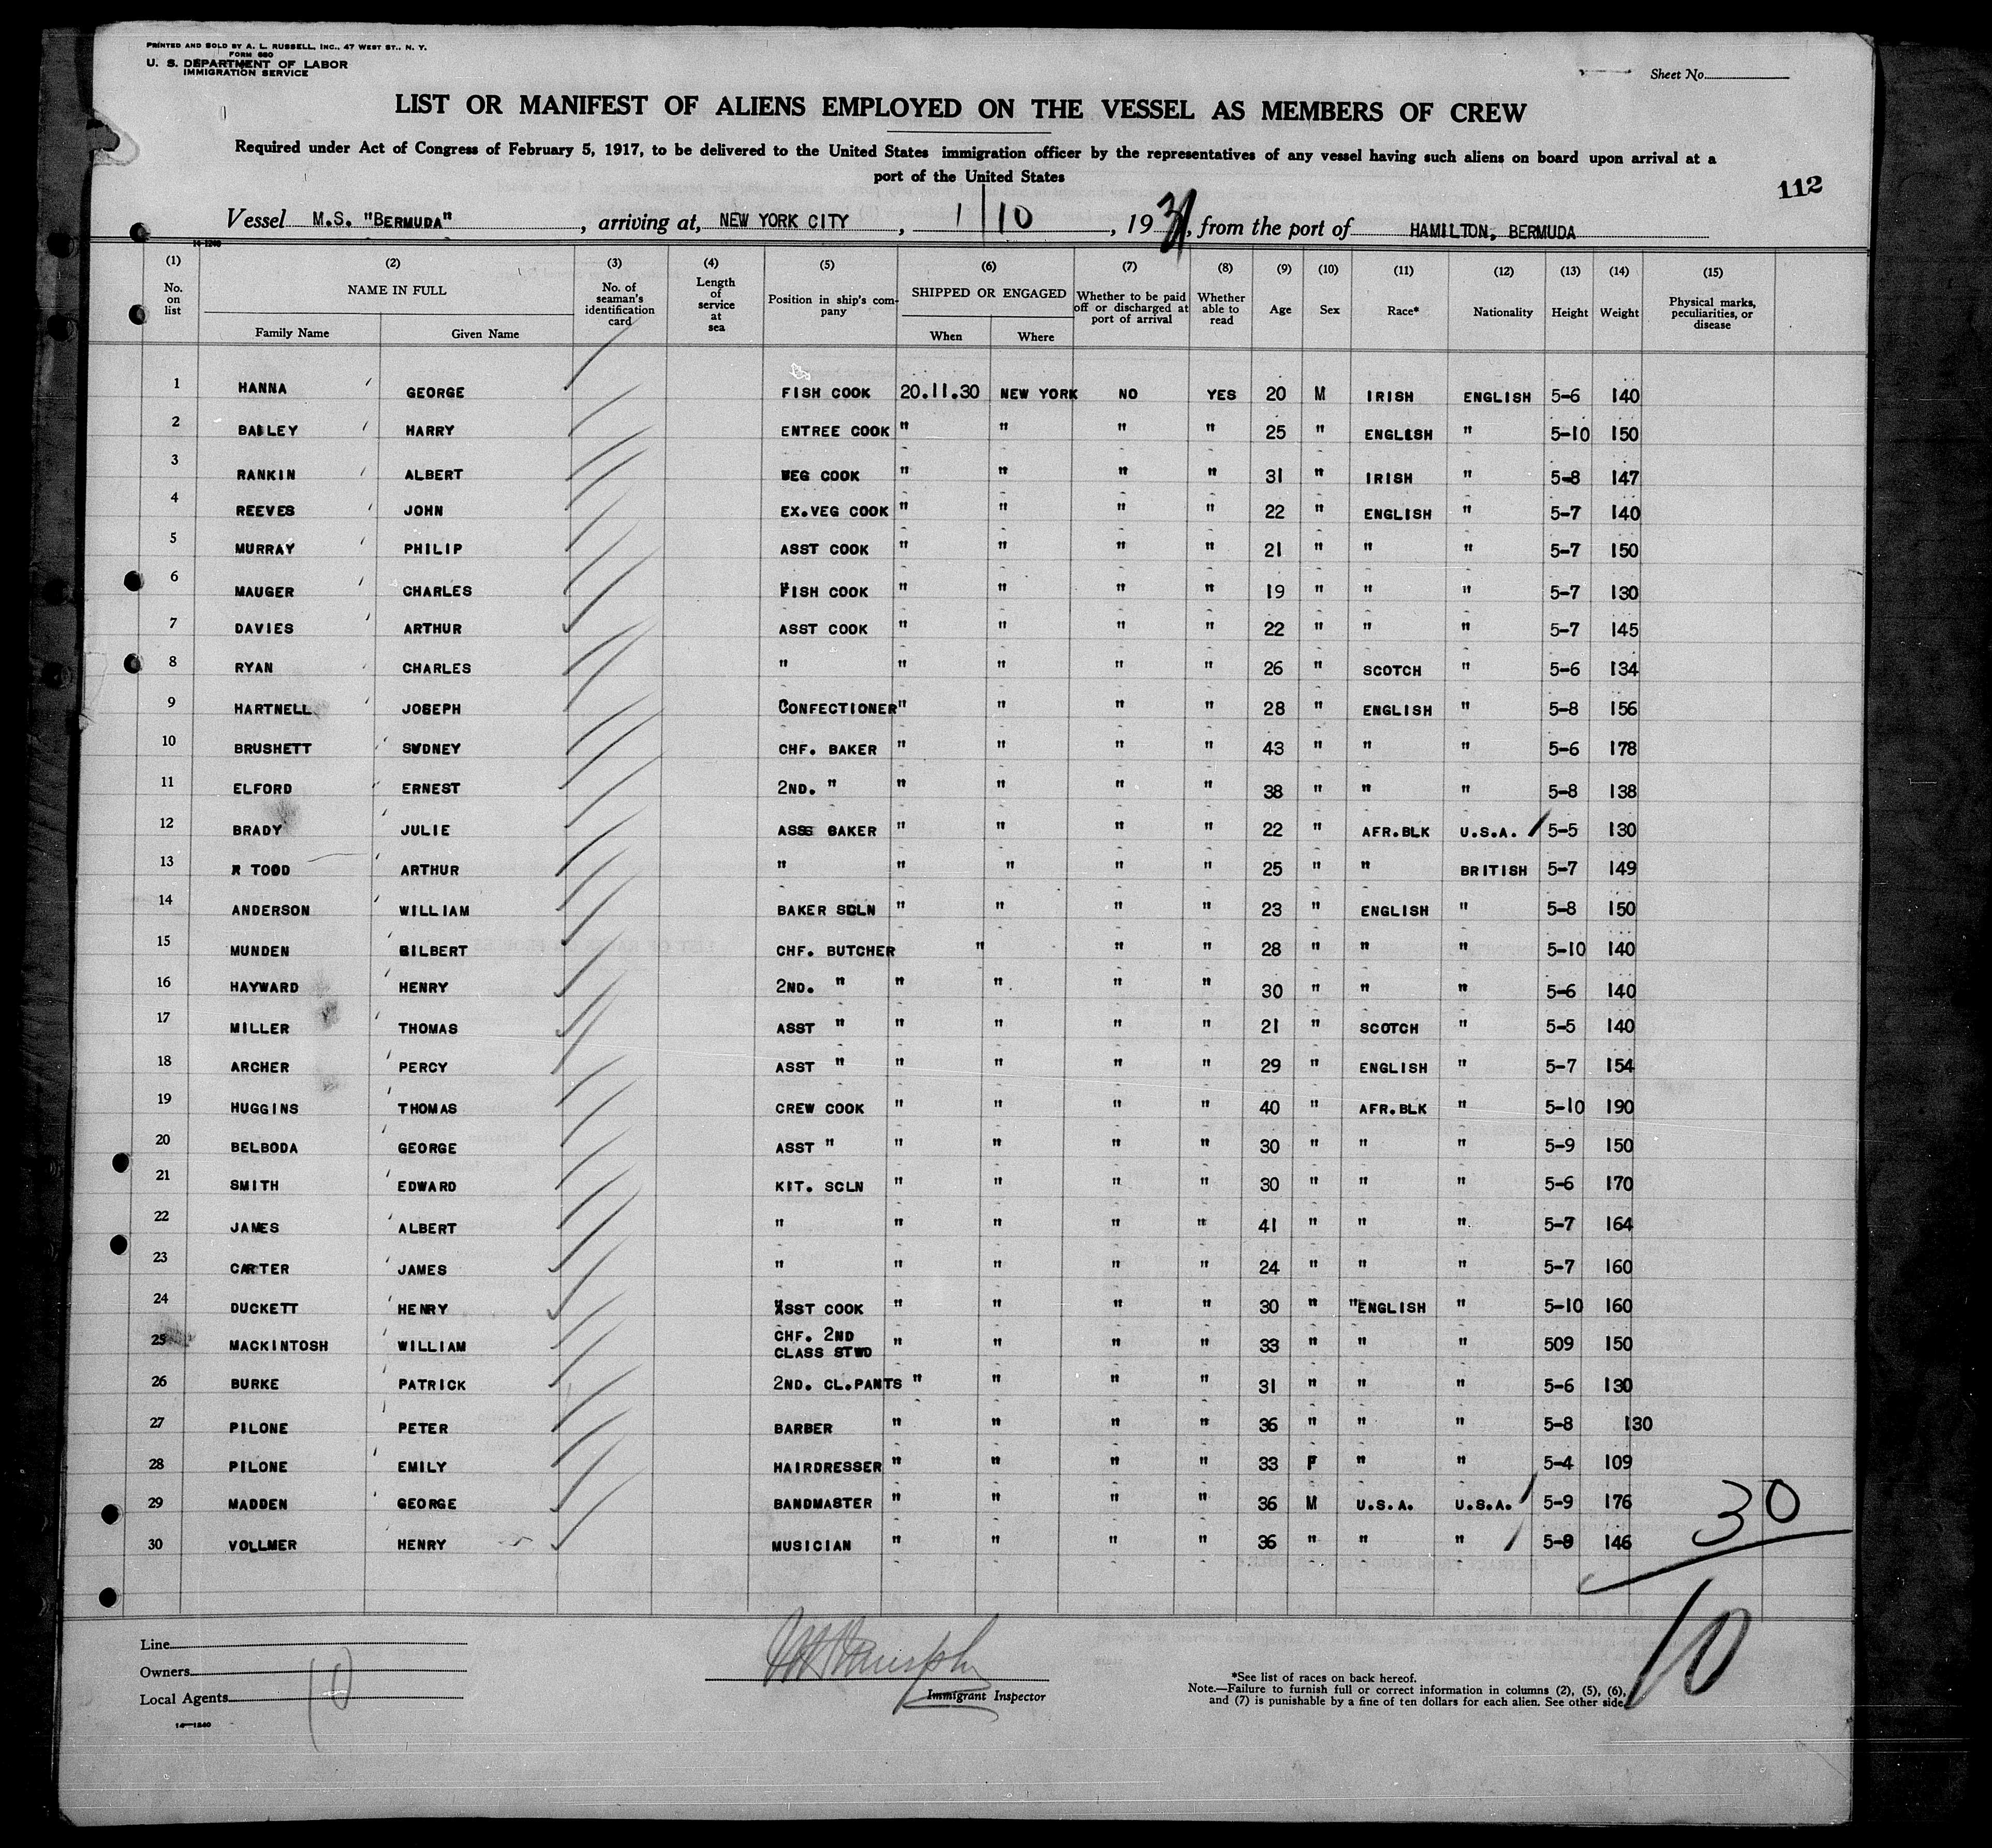 PRINTED AND SOLD BY A. L. RUSSELL, INC., 47 WEST ST., N. Y.
FORM 680
U. S. DEPARTMENT OF LABOR
IMMIGRATION SERVICE
Sheet No.
LIST OR MANIFEST OF ALIENS EMPLOYED ON THE VESSEL AS MEMBERS OF CREW
Required under Act of Congress of February 5, 1917, to be delivered to the United States immigration officer by the representatives of any vessel having such aliens on board upon arrival at a
port of the United States
112
Vessel M.S. "BERMUDA", arriving at, NEW YORK CITY, 1/10, 1931, from the port of HAMILTON, BERMUDA
14-1240
(1) (2) (3) (4) (5) (6) (7) (8) (9) (10) (11) (12) (13) (14) (15)
No. on list NAME IN FULL Family Name Given Name No. of seaman's identification card Length of service at sea Position in ship's company SHIPPED OR ENGAGED When Where Whether to be paid off or discharged at port of arrival Whether able to read Age Sex Race* Nationality Height Weight Physical marks, peculiarities, or disease
1 HANNA GEORGE FISH COOK 20.11.30 NEW YORK NO YES 20 M IRISH ENGLISH 5-6 140
2 BAILEY HARRY ENTREE COOK " " " " 25 " ENGLISH " 5-10 150
3 RANKIN ALBERT VEG COOK " " " " 31 " IRISH " 5-8 147
4 REEVES JOHN EX.VEG COOK " " " " 22 " ENGLISH " 5-7 140
5 MURRAY PHILIP ASST COOK " " " " 21 " " " 5-7 150
6 MAUGER CHARLES FISH COOK " " " " 19 " " " 5-7 130
7 DAVIES ARTHUR ASST COOK " " " " 22 " " " 5-7 145
8 RYAN CHARLES " " " " " 26 " SCOTCH " 5-6 134
9 HARTNELL JOSEPH CONFECTIONER " " " " 28 " ENGLISH " 5-8 156
10 BRUSHETT SYDNEY CHF. BAKER " " " " 43 " " " 5-6 178
11 ELFORD ERNEST 2ND. " " " " " 38 " " " 5-8 138
12 BRADY JULIE ASSS BAKER " " " " 22 " AFR.BLK U.S.A. 5-5 130
13 TODD ARTHUR " " " " " 25 " " BRITISH 5-7 149
14 ANDERSON WILLIAM BAKER SCLN " " " " 23 " ENGLISH " 5-8 150
15 MUNDEN GILBERT CHF. BUTCHER " " " 28 " " " 5-10 140
16 HAYWARD HENRY 2ND. " " " " " 30 " " " 5-6 140
17 MILLER THOMAS ASST " " " " " 21 " SCOTCH " 5-5 140
18 ARCHER PERCY ASST " " " " " 29 " ENGLISH " 5-7 154
19 HUGGINS THOMAS CREW COOK " " " " 40 " AFR.BLK " 5-10 190
20 BELBODA GEORGE ASST " " " " " 30 " " " 5-9 150
21 SMITH EDWARD KIT. SCLN " " " " 30 " " " 5-6 170
22 JAMES ALBERT " " " " " 41 " " " 5-7 164
23 CARTER JAMES " " " " " 24 " " " 5-7 160
24 DUCKETT HENRY ASST COOK " " " " 30 " "ENGLISH " 5-10 160
25 MACKINTOSH WILLIAM CHF. 2ND CLASS STWD " " " " 33 " " " 509 150
26 BURKE PATRICK 2ND. CL.PANTS " " " " 31 " " " 5-6 130
27 PILONE PETER BARBER " " " " 36 " " " 5-8 130
28 PILONE EMILY HAIRDRESSER " " " " 33 F " " 5-4 109
29 MADDEN GEORGE BANDMASTER " " " " 36 M U.S.A. U.S.A. 5-9 176
30 VOLLMER HENRY MUSICIAN " " " " 36 " " " 5-8 146
30
10
Line
Owners
Local Agents
10
14-1240
Immigrant Inspector
*See list of races on back hereof.
Note.—Failure to furnish full or correct information in columns (2), (5), (6),
and (7) is punishable by a fine of ten dollars for each alien. See other side.